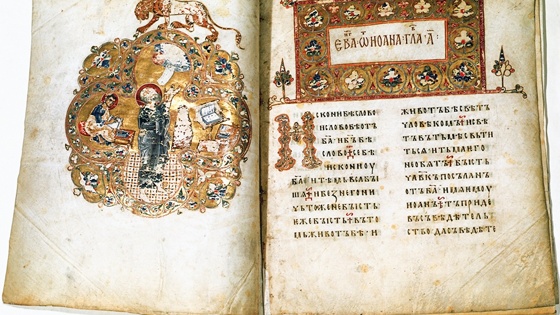 ЕВА ѾИОАНА · ГЛА · А҃ :
ИСКОНИБѢСЛОВО
ИСЛОВОБѢОТЪ
БАИБЪБѢ
СЛОВО·СЕБѢ
ИСКОНИОУ
БА҃ИТѢМЬВЬСАБЫ
ШѦ·ИБЕЖНЕГОНИ
ЧЬТОЖЕНЕБЫСТЬ
ЕЖЕБЫСТЬ·ВЪТО
МЬЖИВОТЪБѢ·И
ЖИВОТЪБѢСВѢТЪ
ЧЛОВѢКОМЪ·ИСВѢ
ТЪВЪТЬМѢСВЬТИ
ТЬСѦ·ИТЬМАѤГО
НЕОБѦТЪ·БЫСТЬ
ЧЛ҃ВКЪПОСЪЛАНЪ
ОТЪБА҃·ИМѦѤМОУ
ИОАНЪ·ТЪПРИДЕ
ВЪСЪВѢДѢТЕЛЬ
СТВО·ДАСЪВѢДѢТЕ